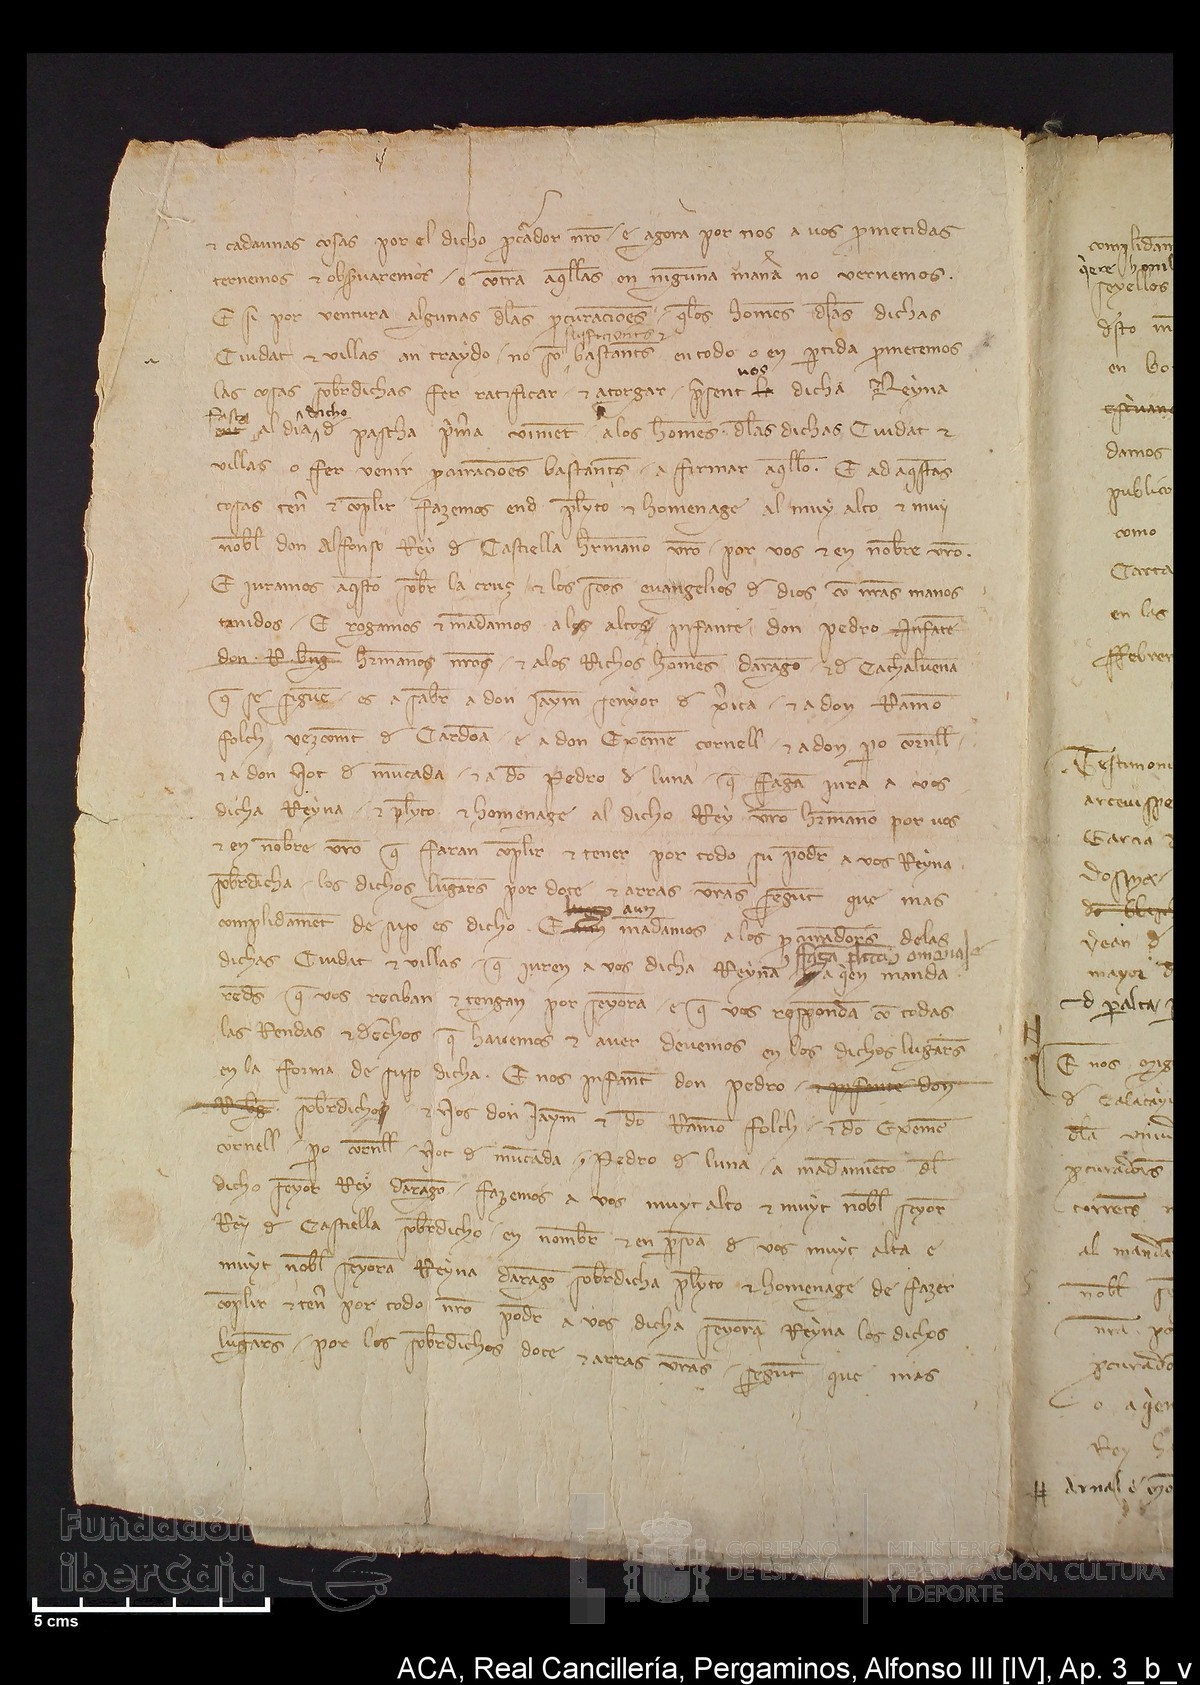 & cadaunas cosas por el dicho pcurador nro / e agora por nos a uos prometidas
ternemos & obseruaremos / e contra aqllas en ninguna manera no vernemos.
E si por ventura algunas dlas pcuraciones / qlos homes dlas dichas
sufficients &
Ciudat & villas an traydo / no son bastants en todo o en ptida prometemos
las cosas sobrdichas fer ratificar / & atorgar / psent la uos dicha Reyna
al dia dicho de pascha pmera vinient a los homes dlas dichas Ciudat &
villas o ffer venir pcuraciones bastants / a firmar aqllo. E ad aqstas
cosas tenr & complir fazemos end plyto & homenage al muy alto & muy
nobl don Alfonso Rey de Castiella hermano uro / por uos & en nombre uro.
E iuramos aqsto sobr la cruz / & los scos euangelios de dios con nras manos
tanidos / E rogamos & mandamos alos altos infante don pedro infante
don R bng hermanos nros / & alos Richos homes daragon / & de Cathaluenia
q se sigue / es a sabr a don Jaym senyor de xerica / & a don Ramon
folch vezcomt de Cardona / e a don Exemen cornell / & a don po cornell /
& a don Not de muncada / & a don Pedro de luna / q fagan iura a vos
dicha Reyna / & plyto & homenage al dicho Rey uro hermano por uos
& en nombre uro q faran complir & tener por todo su podr a vos Reyna
sobrdicha / los dichos lugars por dote & arras uras segunt que mas
complidament de suso es dicho. E aun mandamos a los pcuradors delas
dichas Ciudat & villas / q iuren a vos dicha Reyna o a qen manda
reds q vos reciban & tengan por seyora / e q vos respondan con todas
las Rendas & dechos q hauemos & auer deuemos en los dichos lugars
en la forma de suso dicha. E nos infant don pedro / & infante don
R. bg. sobrdichos & Nos don Jaym & don Ramon folch / & don Exemen
cornell / po cornell / Not de muncada / Pedro de luna / a mandamiento dl
dicho seyor Rey daragon / fazemos a vos muyt alto & muyt nobl seyor
Rey de Castiella sobrdicho / en nombr & en psona de vos muyt alta e
muyt nobl seyora Reyna daragon sobrdicha plyto & homenage de fazer
complir & tenr por todo nro podr a vos dicha seyora Reyna los dichos
lugars / por los sobrdichos dote & arras uras / segunt que mas
Testimoni
Garcia
mayor
E nos
de Calatayu
Rey
Arnal
Fundación
iberCaja
GOBIERNO
DE ESPAÑA
MINISTERIO
DE EDUCACIÓN, CULTURA
Y DEPORTE
5 cms
ACA, Real Cancillería, Pergaminos, Alfonso III [IV], Ap. 3_b_v